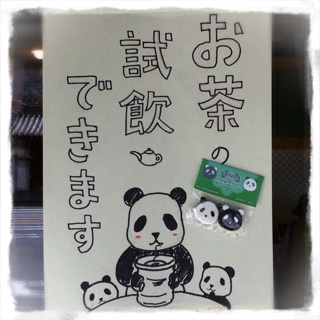 お茶の
試飲
できます